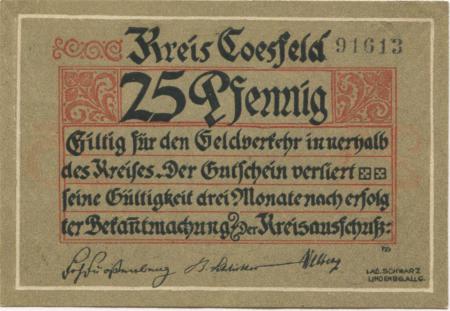 Kreis Coesfeld 91613
25 Pfennig
Giltig für den Geldverkehr innerhalb
des Kreises. Der Gutschein verliert
seine Gültigkeit drei Monate nach erfolg
ter Bekan̄tmachung. Der Kreisausschuß:
LAD. SCHWARZ
LINDENBG. ALLG.